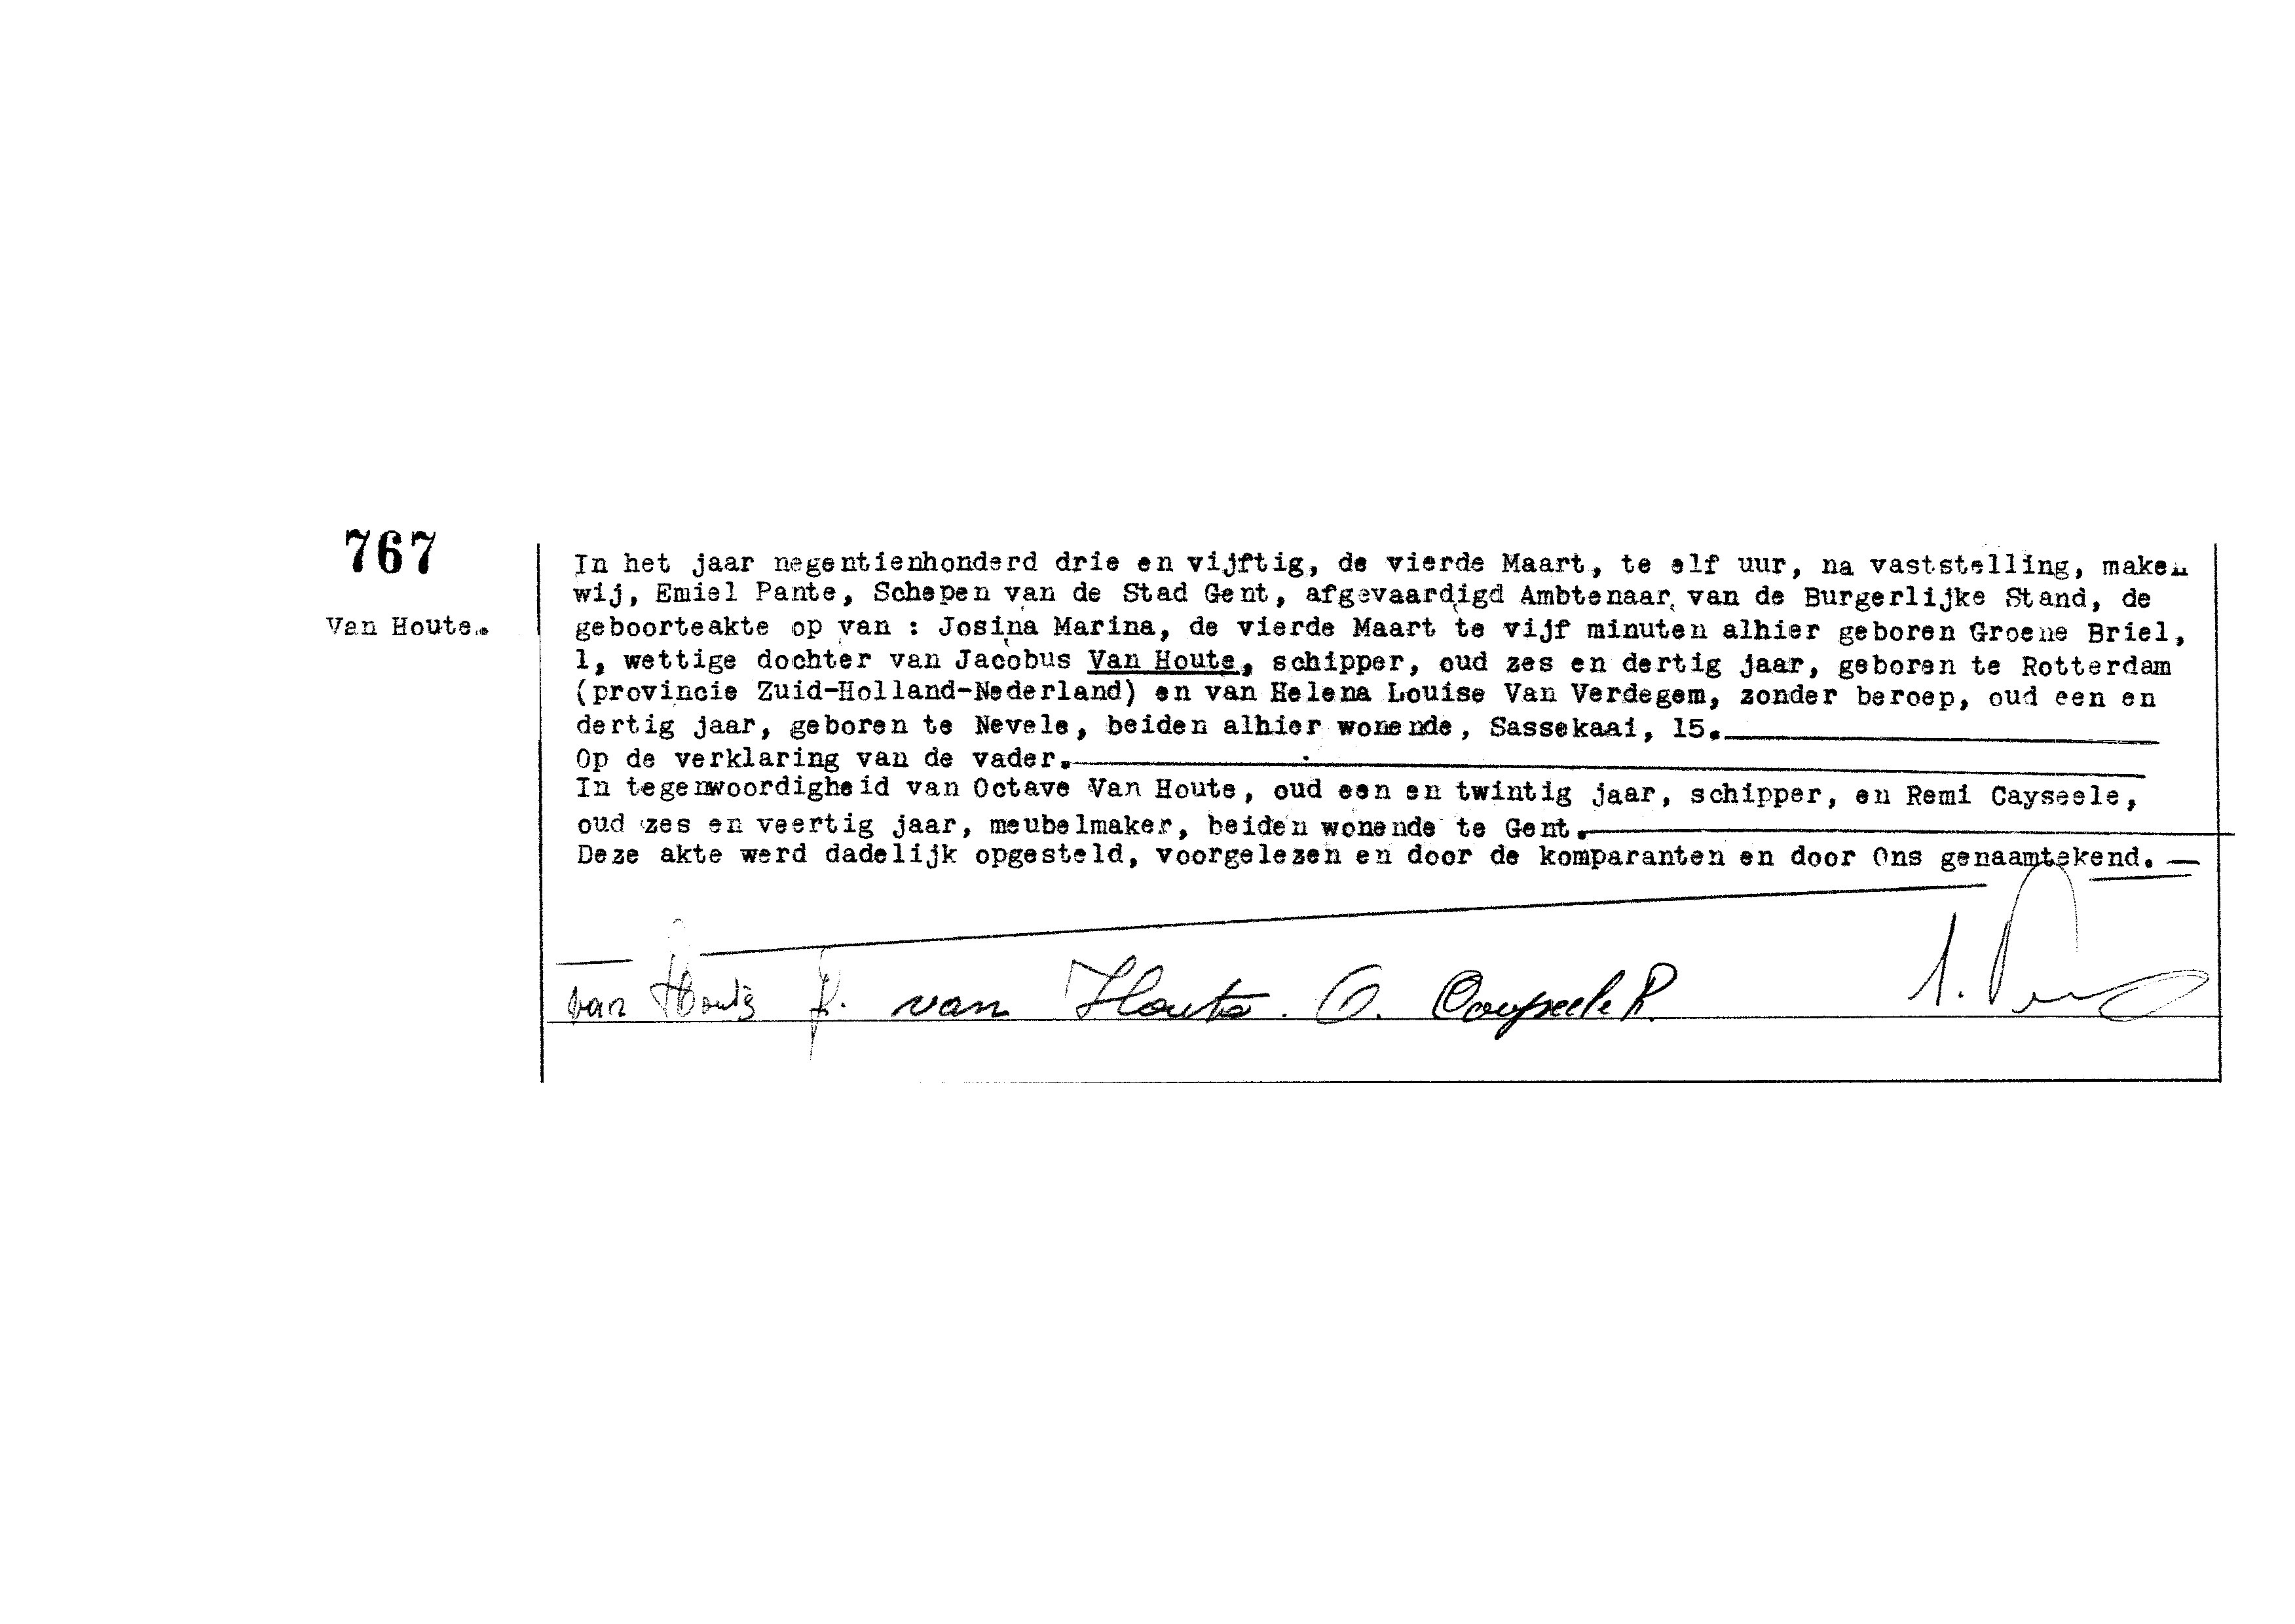 767
Van Houte.
In het jaar negentienhonderd drie en vijftig, de vierde Maart, te elf uur, na vaststelling, maken
wij, Emiel Pante, Schepen van de Stad Gent, afgevaardigd Ambtenaar van de Burgerlijke Stand, de
geboorteakte op van : Josina Marina, de vierde Maart te vijf minuten alhier geboren Groene Briel,
1, wettige dochter van Jacobus Van Houte, schipper, oud zes en dertig jaar, geboren te Rotterdam
(provincie Zuid-Holland-Nederland) en van Helena Louise Van Verdegem, zonder beroep, oud een en
dertig jaar, geboren te Nevele, beiden alhier wonende, Sassekaai, 15.
Op de verklaring van de vader.
In tegenwoordigheid van Octave Van Houte, oud een en twintig jaar, schipper, en Remi Cayseele,
oud zes en veertig jaar, meubelmaker, beiden wonende te Gent.
Deze akte werd dadelijk opgesteld, voorgelezen en door de komparanten en door Ons genaamtekend.
van Houte J. van Houte. O. Cayseele R.